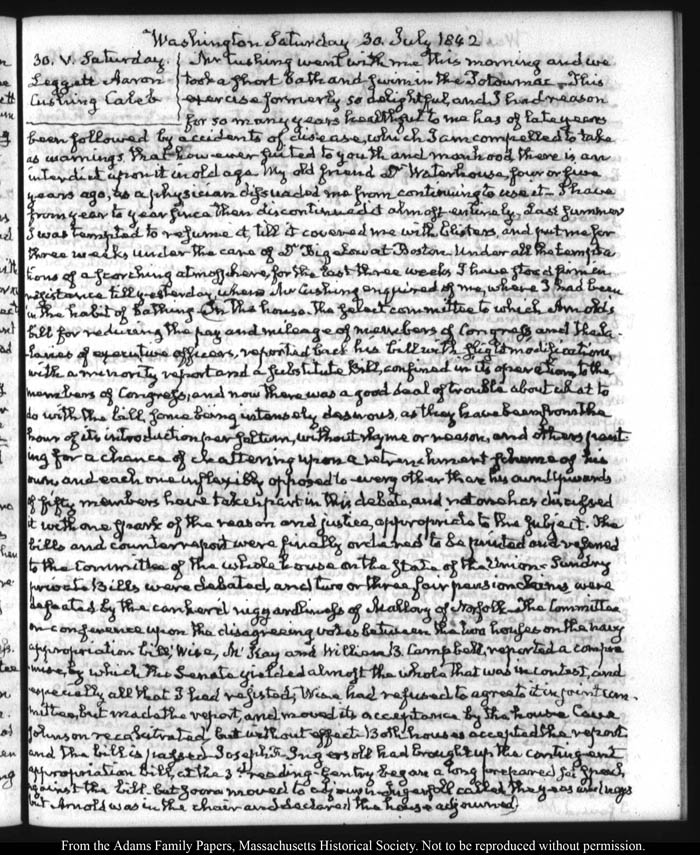 Washington Saturday 30. July 1842
30. V. Saturday. Mr Cushing went with me this morning and we
Leggett Aaron took a short bath and swim in the Potowmac. This
Cushing Caleb exercise formerly so delightful, and I had reason
for so many years healthful to me has of late years
been followed by accidents of disease, which I am compelled to take
as warnings, that how-ever suited to youth and manhood there is an
interdict upon it in old age. My old friend Dr Waterhouse, four or five
years ago, as a physician dissuaded me from continuing to use it. I have
from year to year since then discontinued it almost entirely. Last summer
I was tempted to resume it, till it covered me with blisters, and put me for
three weeks under the care of Dr Bigelow at Boston. Under all the tempta
tions of a scorching atmosphere, for the last three weeks I have stood firm in
resistance till yesterday when Mr Cushing enquired of me, where I had been
in the habit of bathing. In the house, the select committee to which Arnold's
bill for reducing the pay and mileage of members of Congress and the sa-
laries of executive officers, reported back his bill with slight modifications,
with a minority report and a substitute Bill, confined in its operation, to the
members of Congress, and now there was a good deal of trouble about what to
do with the bill, some being intensely desirous, as they have been from the
hour of its introduction per saltum, without rhyme or reason, and others pant-
ing for a chance of clattering upon a retrenchment scheme of his
own, and each one inflexibly opposed to every other than his own. Upwards
of fifty members have taken part in this debate, and not one has discussed
it with one spark of the reason and justice, appropriate to the subject. The
bills and counter report were finally ordered to be printed and referred
to the Committee of the whole house on the State of the Union. Sundry
private Bills were debated, and two or three fair pension claims were
defeated by the cankered niggardliness of Mallory of Norfolk. The Committee
on conference upon the disagreeing votes between the two houses on the navy
appropriation bill, Wise, McKay and William B. Campbell, reported a compro
mise, by which the Senate yielded almost the whole that was in contest, and
especially all that I had resisted; Wise had refused to agree to it in joint com-
mittee, but made the report, and moved its acceptance by the house. Cave
Johnson recalcitrated but without effect. Both houses accepted the report
and the bill is passed. Joseph R. Ingersoll had brought up the contingent
appropriation bill, at the 3d reading. Gentry began a long prepared set speech,
against the bill. but soon moved to adjourn. Ingersoll called the yeas and nays
but Arnold was in the chair and declared the house adjourned
From the Adams Family Papers, Massachusetts Historical Society. Not to be reproduced without permission.